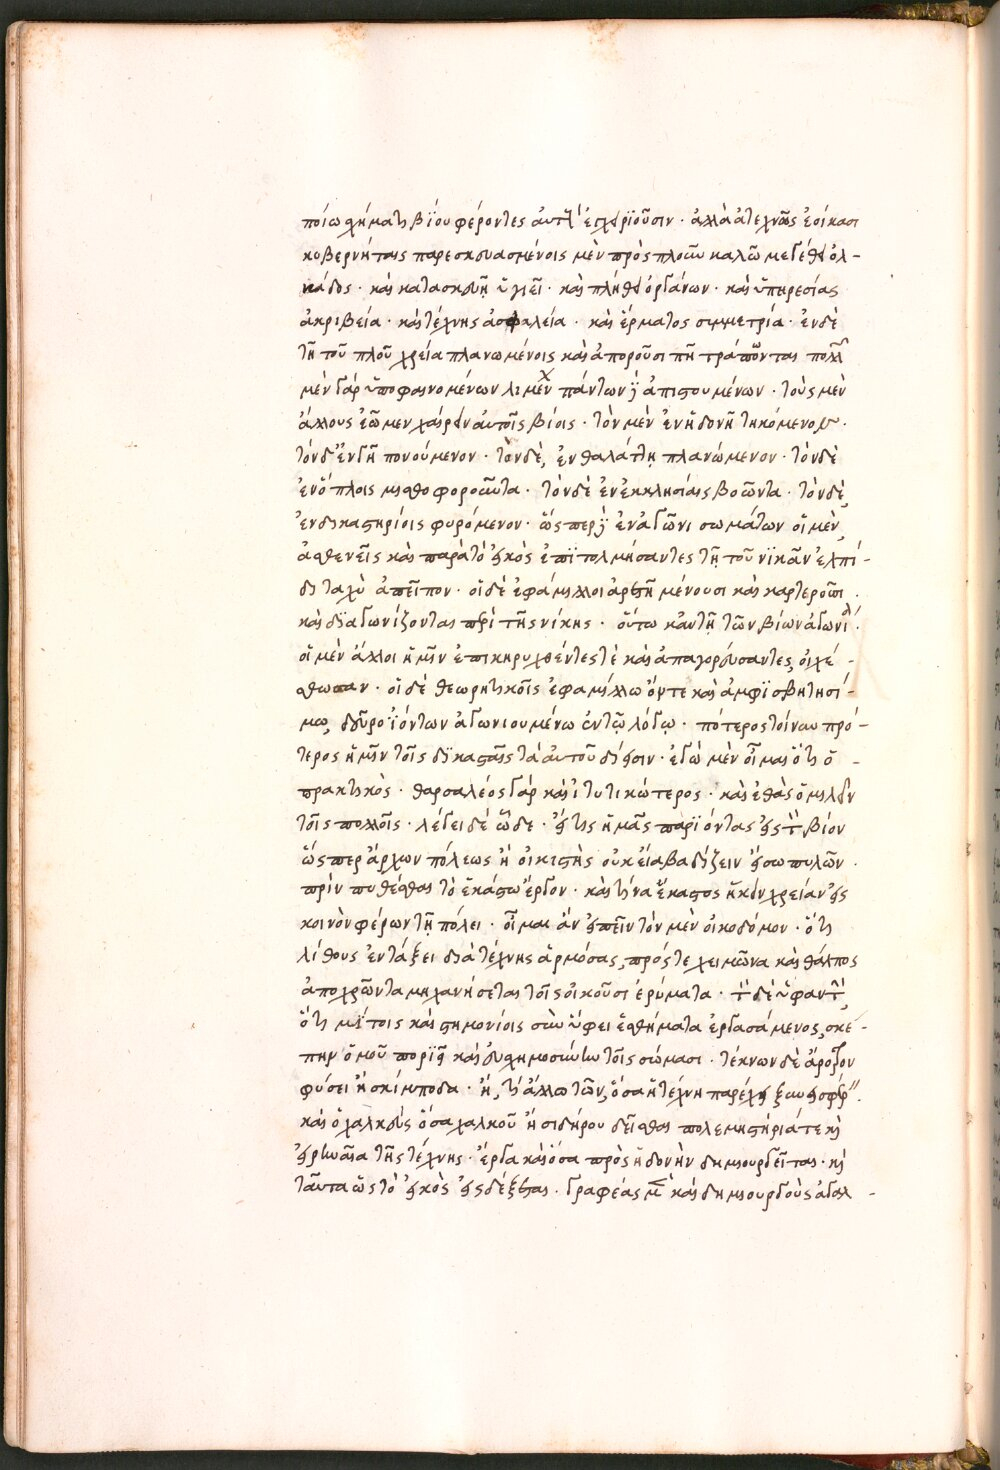 ποίω χήματι βίου φέροντες αὐτὴν ἐπιχωριοῦσιν· ἀλλὰ ἀτεχνῶς ἐοίκασι
κυβερνήταις παρεσκευασμένοις μὲν πρὸς πλοῦν καλῶ μεγέθει ὁλ-
κάδος· καὶ κατασκευῇ ὑγιεῖ· καὶ πλήθει ὀργάνων· καὶ ὑπηρεσίας
ἀκριβεία· καὶ τέχνης ἀσφαλεία· καὶ ἕρματος συμμετρία· ἐν δὲ
τῇ τοῦ πλοῦ χρεία πλανωμένοις καὶ ἀποροῦσι πῆ τράπωνται πολλῶν
μὲν γὰρ ὑποφαινομένων λιμένων πάντων δὲ ἀπιστουμένων· τοὺς μὲν
ἄλλους ἐῶμεν χαίρειν αὐτοῖς βίοις· τὸν μὲν ἐν ἡδονῇ τηκόμενον·
τὸν δ' ἐν γῇ πονούμενον· τὸν δὲ, ἐν θαλάττῃ πλανώμενον· τὸν δὲ
ἐν ὅπλοις μισθοφοροῦντα· τὸν δὲ ἐν ἐκκλησίαις βοῶντα· τὸν δὲ,
ἐν δικαστηρίοις φυρόμενον· ὥσπερ δὲ ἐν ἀγῶνι σωμάτων οἱ μὲν,
ἀσθενεῖς καὶ παρὰ τὸ εἰκὸς ἐπιτολμήσαντες τῇ τοῦ νικᾶν ἐλπί-
δι ταχὺ ἀπεῖπον· οἱ δὲ ἐφάμιλλοι ἀρετῇ μένουσι καὶ καρτεροῦσι.
καὶ διαγωνίζονται περὶ τῆς νίκης· οὕτω κἀν τῇ τῶν βίων ἀγωνία·
οἱ μὲν ἄλλοι ἡμῖν ἐπικηρυχθέντες τὲ καὶ ἀπαγορεύσαντες, οἰχέ-
σθωσαν· οἱ δὲ θεωρητικοῖς ἐφαμίλλω ὄντε καὶ ἀμφισβητησί-
μω, δεῦρο ἰόντων ἀγωνιουμένω ἐν τῷ λόγῳ· πότερος τοίνυν πρό-
τερος ἡμῖν τοῖς δικασταῖς τὰ αὑτοῦ διήσιν· ἐγὼ μὲν οἶμαι ὅτι ὁ -
πρακτικὸς· θαρσαλέος γὰρ καὶ ἰτυτικώτερος· καὶ ἐθὰς ὁμιλεῖν
τοῖς πολλοῖς· λέγει δὲ ὧδε· εἴ τις ἡμᾶς παριόντας εἰς τὸν βίον
ὥσπερ ἄρχων πόλεως ἢ οἰκιστὴς οὐκ εἴα βαδίζειν εἴσω πυλῶν.
πρὶν πυθέσθαι τὸ ἑκάστω ἔργον· καὶ τίνα ἕκαστος ἥκει χρείαν εἰς
κοινὸν φέρων τῇ πόλει· οἶμαι ἂν εἰπεῖν τὸν μὲν οἰκοδόμον· ὅτι
λίθους ἐν τάξει διὰ τέχνης ἁρμόσας, πρός τε χειμῶνα καὶ θάλπος
ἀποχρῶντα μηχανήσεται τοῖς οἰκοῦσι ἐρύματα· τὸν δὲ ὑφαντὴν,
ὅτι μίτοις καὶ στημονίοις σὺν ὕφει ἐσθήματα ἐργασάμενος, σκέ-
πην ὁμοῦ ποριεῖ καὶ εὐσχημοσύνην τοῖς σώμασι· τέκνων δὲ ἄροτρον
φύσει ἢ σκίμποδα· ἢ, τὶ ἄλλο τῶν, ὅσα ἡ τέχνη παρέχει ξυνεισφέρειν·
καὶ ὁ χαλκεὺς ὅσα χαλκοῦ ἢ σιδήρου δεῖσθαι πολεμιστήριά τε καὶ
εἰρηναῖα τῆς τέχνης· ἔργα καὶ ὅσα πρὸς ἡδονὴν δημιουργεῖται· καὶ
ταῦτα ὡς τὸ εἰκὸς εἰσδέξεται· γραφέας μὲν καὶ δημιουργοὺς ἀγαλ-